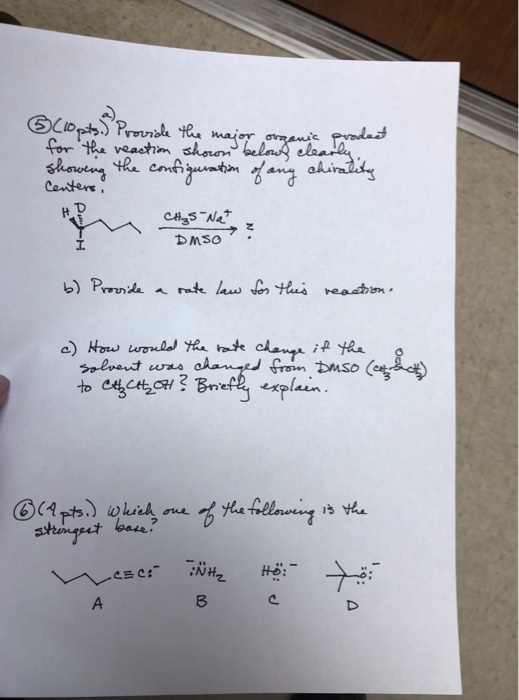 a)
⑤ (10 pts.) Provide the major organic product
for the reaction shown below, clearly
showing the configuration of any chirality
centers.
H D
I
CH₃S⁻Na⁺
DMSO
?
b) Provide a rate law for this reaction.
c) How would the rate change if the
solvent was changed from DMSO (CH₃SCH₃)
O
to CH₃CH₂OH? Briefly explain.
⑥ (4 pts.) Which one of the following is the
strongest base?
C≡C:⁻ ⁻:N̈H₂ HÖ:⁻ Ö:⁻
A B C D